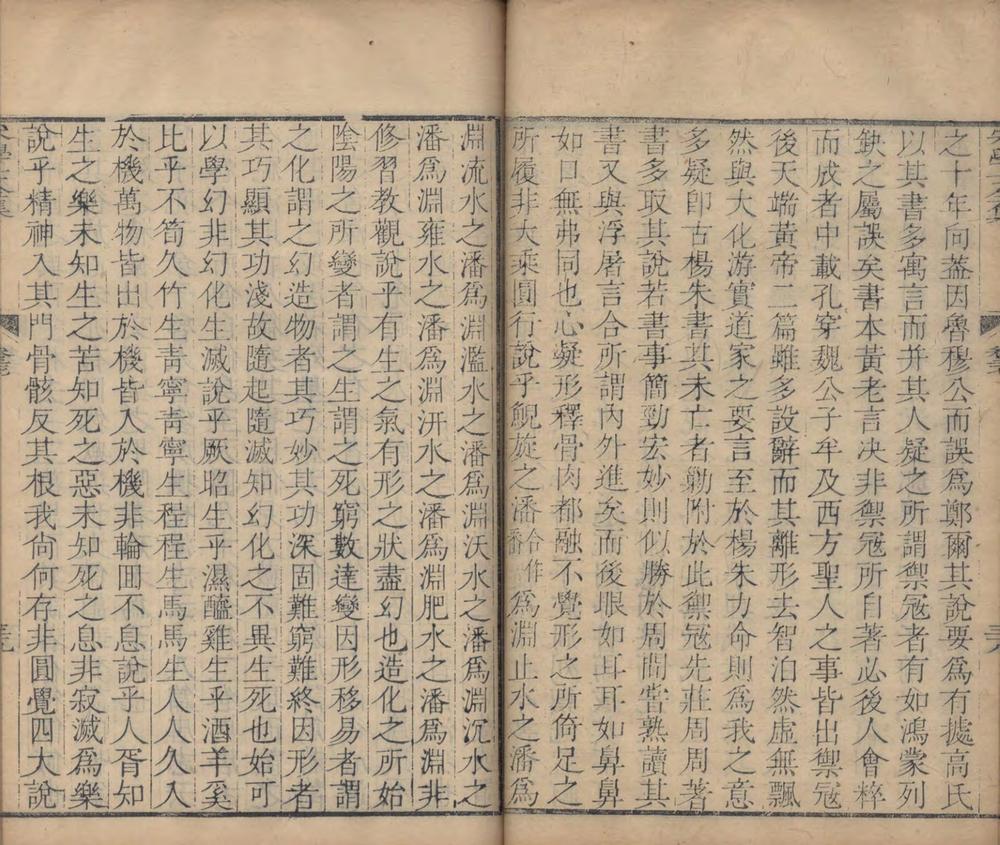 之十年向葢因魯穆公而誤爲鄭爾其說要爲有據高氏
以其書多寓言而并其人疑之所謂禦冦者有如鴻蒙列
缺之屬誤矣書本黃老言决非禦冦所自著必後人會稡
而成者中載孔穿魏公子牟及西方聖人之事皆出禦冦
後天端黃帝二篇雖多設辭而其離形去智泊然虛無飄
然與大化游實道家之要言至於楊朱力命則爲我之意
多疑卽古楊朱書其未亡者勦附於此禦冦先莊周周著
書多取其說若書事簡勁宏妙則似勝於周間嘗熟讀其
書又與浮屠言合所謂內外進矣而後眼如耳耳如鼻鼻
如口無弗同也心凝形釋骨肉都融不覺形之所倚足之
所履非大乘圓行說乎鯢旋之潘爲淵止水之潘爲
淵流水之潘爲淵濫水之潘爲淵沃水之潘爲淵沉水之
潘爲淵雍水之潘爲淵汧水之潘爲淵肥水之潘爲淵非
修習教觀說乎有生之氣有形之狀盡幻也造化之所始
陰陽之所變者謂之生謂之死窮數達變因形移易者謂
之化謂之幻造物者其巧妙其功深固難窮難終因形者
其巧顯其功淺故隨起隨滅知幻化之不異生死也始可
以學幻非幻化生滅說乎厥昭生乎濕醯雞生乎酒羊奚
比乎不筍久竹生青寧青寧生程程生馬馬生人人久入
於機萬物皆出於機皆入於機非輪囬不息說乎人胥知
生之樂未知生之苦知死之惡未知死之息非寂滅爲樂
說乎精神入其門骨骸反其根我尙何存非圓覺四大說